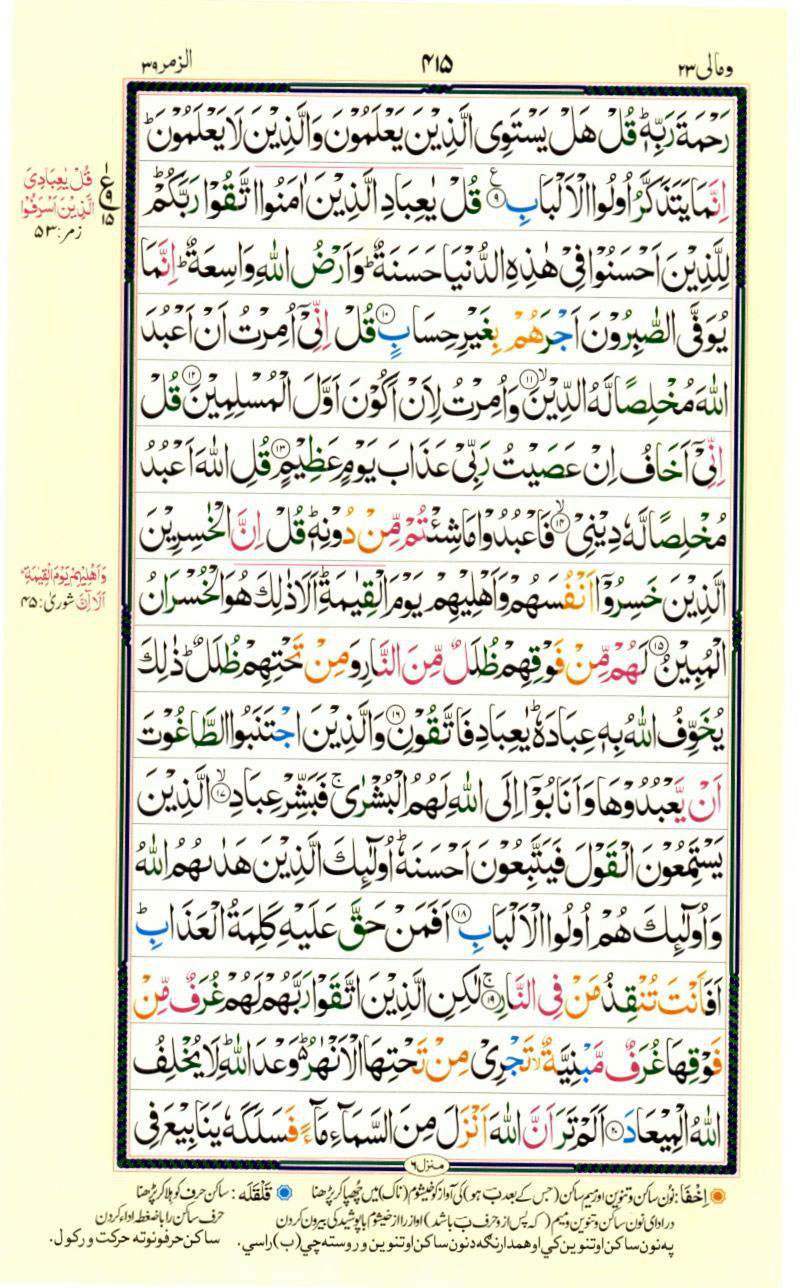 ومالی ۲۳
۴۱۵
الزمر ۳۹
رَحْمَةَ رَبِّهٖؕ قُلْ هَلْ يَسْتَوِى الَّذِيْنَ يَعْلَمُوْنَ وَالَّذِيْنَ لَا يَعْلَمُوْنَؕ
اِنَّمَا يَتَذَكَّرُ اُولُوا الْاَلْبَابِ ۹ قُلْ يٰعِبَادِ الَّذِيْنَ اٰمَنُوا اتَّقُوْا رَبَّكُمْؕ
لِلَّذِيْنَ اَحْسَنُوْا فِىْ هٰذِهِ الدُّنْيَا حَسَنَةٌؕ وَاَرْضُ اللّٰهِ وَاسِعَةٌؕ اِنَّمَا
يُوَفَّى الصّٰبِرُوْنَ اَجْرَهُمْ بِغَيْرِ حِسَابٍ ۱۰ قُلْ اِنِّىْۤ اُمِرْتُ اَنْ اَعْبُدَ
اللّٰهَ مُخْلِصًا لَّهُ الدِّيْنَۙ ۱۱ وَاُمِرْتُ لِاَنْ اَكُوْنَ اَوَّلَ الْمُسْلِمِيْنَ ۱۲ قُلْ
اِنِّىْۤ اَخَافُ اِنْ عَصَيْتُ رَبِّىْ عَذَابَ يَوْمٍ عَظِيْمٍ ۱۳ قُلِ اللّٰهَ اَعْبُدُ
مُخْلِصًا لَّهٗ دِيْنِىْۙ ۱۴ فَاعْبُدُوْا مَا شِئْتُمْ مِّنْ دُوْنِهٖؕ قُلْ اِنَّ الْخٰسِرِيْنَ
الَّذِيْنَ خَسِرُوْۤا اَنْفُسَهُمْ وَاَهْلِيْهِمْ يَوْمَ الْقِيٰمَةِؕ اَلَا ذٰلِكَ هُوَ الْخُسْرَانُ
الْمُبِيْنُ ۱۵ لَهُمْ مِّنْ فَوْقِهِمْ ظُلَلٌ مِّنَ النَّارِ وَمِنْ تَحْتِهِمْ ظُلَلٌؕ ذٰلِكَ
يُخَوِّفُ اللّٰهُ بِهٖ عِبَادَهٗؕ يٰعِبَادِ فَاتَّقُوْنِ ۱۶ وَالَّذِيْنَ اجْتَنَبُوا الطَّاغُوْتَ
اَنْ يَّعْبُدُوْهَا وَاَنَابُوْۤا اِلَى اللّٰهِ لَهُمُ الْبُشْرٰىۚ فَبَشِّرْ عِبَادِۙ ۱۷ الَّذِيْنَ
يَسْتَمِعُوْنَ الْقَوْلَ فَيَتَّبِعُوْنَ اَحْسَنَهٗؕ اُولٰٓئِكَ الَّذِيْنَ هَدٰىهُمُ اللّٰهُ
وَاُولٰٓئِكَ هُمْ اُولُوا الْاَلْبَابِ ۱۸ اَفَمَنْ حَقَّ عَلَيْهِ كَلِمَةُ الْعَذَابِؕ
اَفَاَنْتَ تُنْقِذُ مَنْ فِى النَّارِۚ ۱۹ لٰكِنِ الَّذِيْنَ اتَّقَوْا رَبَّهُمْ لَهُمْ غُرَفٌ مِّنْ
فَوْقِهَا غُرَفٌ مَّبْنِيَّةٌۙ تَجْرِىْ مِنْ تَحْتِهَا الْاَنْهٰرُ ؕ وَعْدَ اللّٰهِؕ لَا يُخْلِفُ
اللّٰهُ الْمِيْعَادَ ۲۰ اَلَمْ تَرَ اَنَّ اللّٰهَ اَنْزَلَ مِنَ السَّمَآءِ مَآءً فَسَلَكَهٗ يَنَابِيْعَ فِى
ع ۹ ۱۵
قُلْ يٰعِبَادِىَ
الَّذِيْنَ اَسْرَفُوْا
زمر: ۵۳
وَاَهْلِيْهِمْ يَوْمَ الْقِيٰمَةِؕ
اَلَاۤ اِنَّ شوریٰ: ۴۵
منزل ۶
اِخْفَا: نُون ساکن و تنوین اور میم ساکن (جس کے بعد بَ ہو) کی آواز کو خیشوم (ناک) میں چھپا کر پڑھنا
قَلْقَلَه: ساکن حرف کو ہلا کر پڑھنا
در ادای نون ساکن و تنوین و میم (که پس از و حرف بَ باشد) آواز را از خیشوم با پوشیدگی بیرون کردن
حرف ساکن را با ضغطه اداء کردن
په نون ساکن او تنوین کي او همدارنګه د نون ساکن او تنوین وروسته چي (ب) راسي.
ساکن حرفونو ته حرکت ورکول.